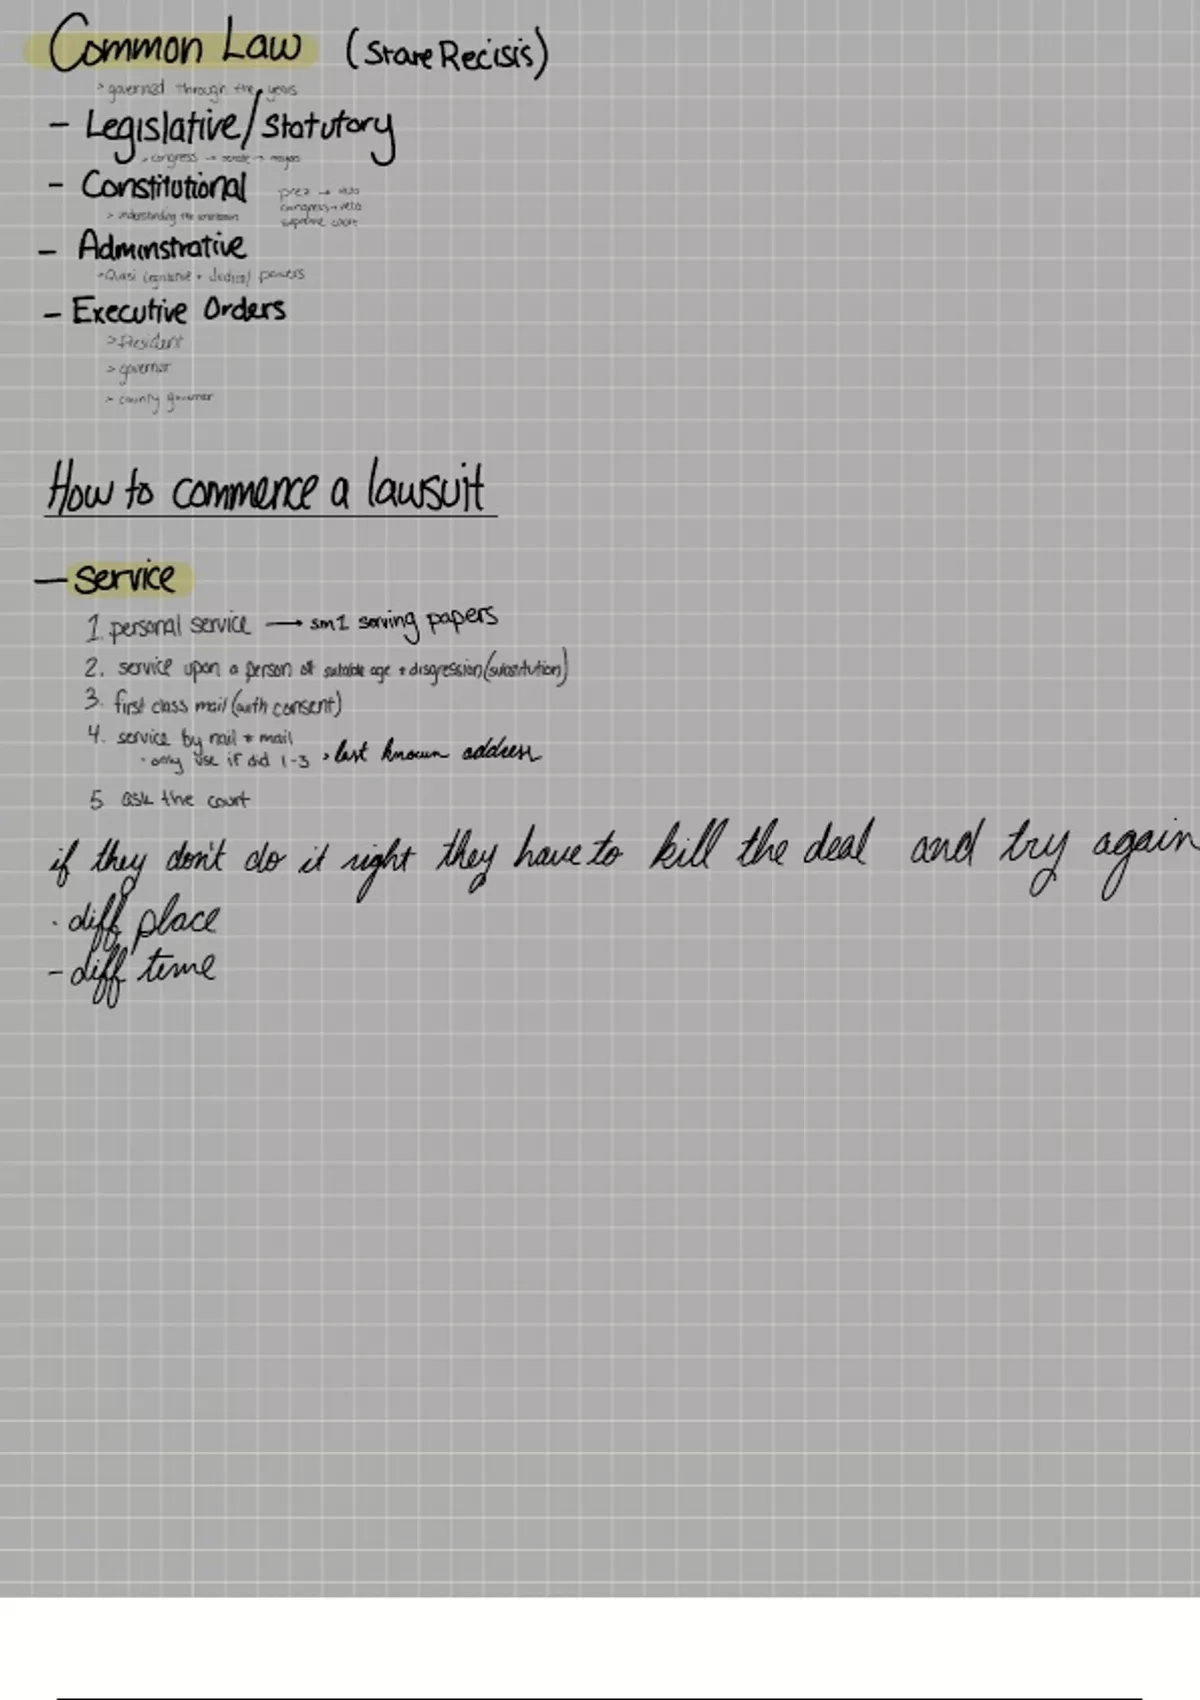 Common Law (Stare Recisis)
> governed through the years
- Legislative/Statutory
> congress → senate → mayors
- Constitutional
prez → veto
congress → veto
supreme court
> understanding the
- Adminstrative
> Quasi Legislative + Judical powers
- Executive Orders
> President
> governor
> county governor
How to commence a lawsuit
- Service
1. personal service → sm1 serving papers
2. service upon a person of suitable age + disgression (substitution)
3. first class mail (with consent)
4. service by nail + mail
· only use if did 1-3 > last known address
5 ask the court
if they don't do it right they have to kill the deal and try again
· diff place
- diff time